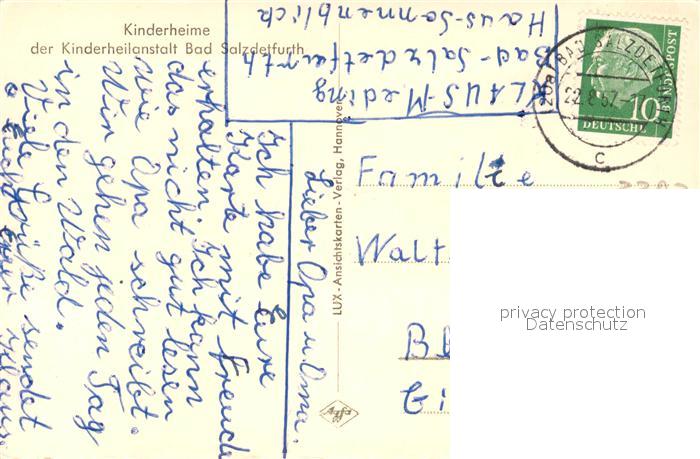 Kinderheime
der Kinderheilanstalt Bad Salzdetfurth
KLAUS-Meding
Bad-Salzdetfurth
Haus-Sonnenblick
(20a) BAD SALZDET
22.8.57-
c
10
DEUTSCHE
BUNDESPOST
Lieber Opa u Oma.
Ich habe Eure
Karte mit Freude
erhalten. Ich kann
das nicht gut lesen
wie Opa schreibt.
Wir gehen jeden Tag
in den Wald.
Viele Grüße sendet
euch euer Klaus
LUX-Ansichtskarten-Verlag, Hannover
Agfa
Familie
Walt
B
privacy protection
Datenschutz